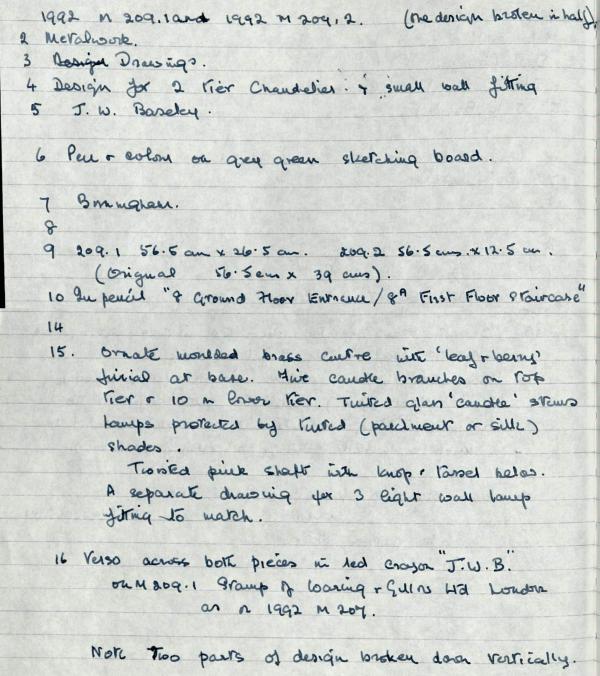 1992 M 209.1 and 1992 M 209.2. (One design broken in half).
2 Metalwork.
3 Design Drawings.
4 Design for 2 tier Chandelier & small wall fitting
5 J. W. Baseley.
6 Pen & colour on grey green sketching board.
7 Birmingham.
8
9 209.1 56.5 cm x 26.5 cm. 209.2 56.5 cms. x 12.5 cm.
(Original 56.5 cm x 39 cms).
10 In pencil "8 Ground Floor Entrance / 8A First Floor Staircase"
14
15. Ornate moulded brass centre with 'leaf & berry'
finial at base. Five candle branches on top
tier & 10 on lower tier. Tinted glass 'candle' stems
lamps protected by tinted (parchment or silk)
shades.
Twisted pink shaft with knop & tassel below.
A separate drawing for 3 light wall lamp
fitting to match.
16 Verso across both pieces in red crayon "J.W.B."
on M 209.1 Stamp of Waring & Gillow Ltd London
as on 1992 M 207.
Note Two parts of design broken down vertically.